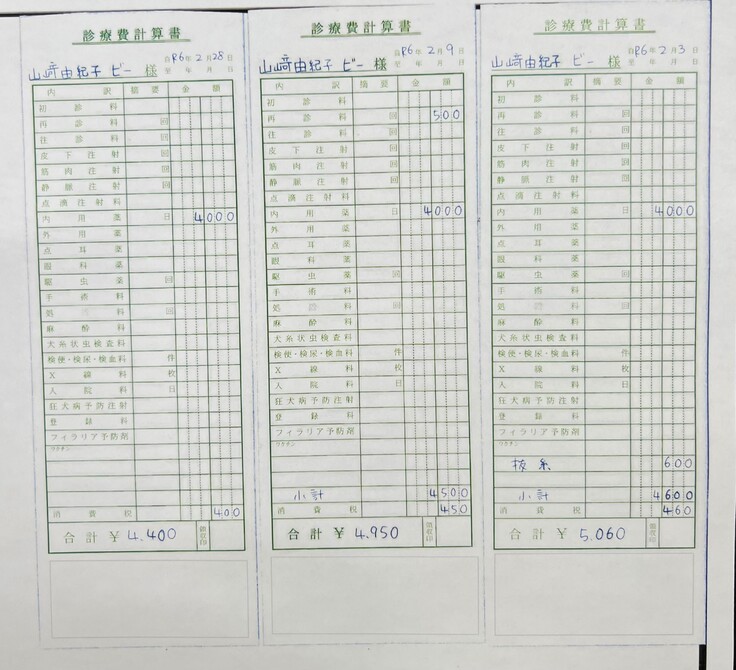 診療費計算書
自R6年2月28日
至 年 月 日
山﨑由紀子 ビー 様
内 訳 摘要 金 額
初診料
再診料 回
往診料 回
皮下注射 回
筋肉注射 回
静脈注射 回
点滴注射料
内用薬 日 4000
外用薬
点耳薬
眼科薬
駆虫薬 回
手術料
処置料 回
麻酔料
犬糸状虫検査料
検便・検尿・検血料 件
X線料 枚
入院料 日
狂犬病予防注射
登録料
フィラリア予防剤
ワクチン
消費税 400
合計 ¥ 4.400 領収印
診療費計算書
自R6年2月9日
至 年 月 日
山﨑由紀子 ビー 様
内 訳 摘要 金 額
初診料
再診料 回 500
往診料 回
皮下注射 回
筋肉注射 回
静脈注射 回
点滴注射料
内用薬 日 4000
外用薬
点耳薬
眼科薬
駆虫薬 回
手術料
処置料 回
麻酔料
犬糸状虫検査料
検便・検尿・検血料 件
X線料 枚
入院料 日
狂犬病予防注射
登録料
フィラリア予防剤
ワクチン
小計 4500
消費税 450
合計 ¥ 4.950 領収印
診療費計算書
自R6年2月3日
至 年 月 日
山﨑由紀子 ビー 様
内 訳 摘要 金 額
初診料
再診料 回
往診料 回
皮下注射 回
筋肉注射 回
静脈注射 回
点滴注射料
内用薬 日 4000
外用薬
点耳薬
眼科薬
駆虫薬 回
手術料
処置料 回
麻酔料
犬糸状虫検査料
検便・検尿・検血料 件
X線料 枚
入院料 日
狂犬病予防注射
登録料
フィラリア予防剤
ワクチン
抜糸 600
小計 4600
消費税 460
合計 ¥ 5.060 領収印